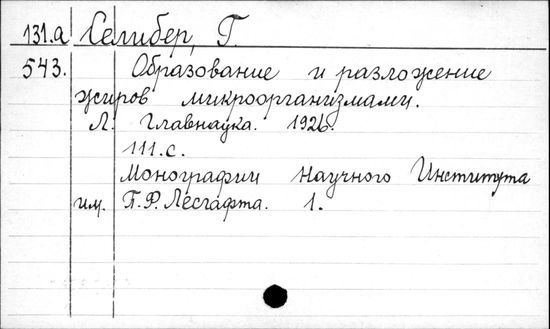 131.а Селибер, Г.
543. Образование и разложение
жиров микроорганизмами.
Л. Главнаука. 1926.
111.с.
Монографии Научного Института
им. П.Ф. Лесгафта. 1.